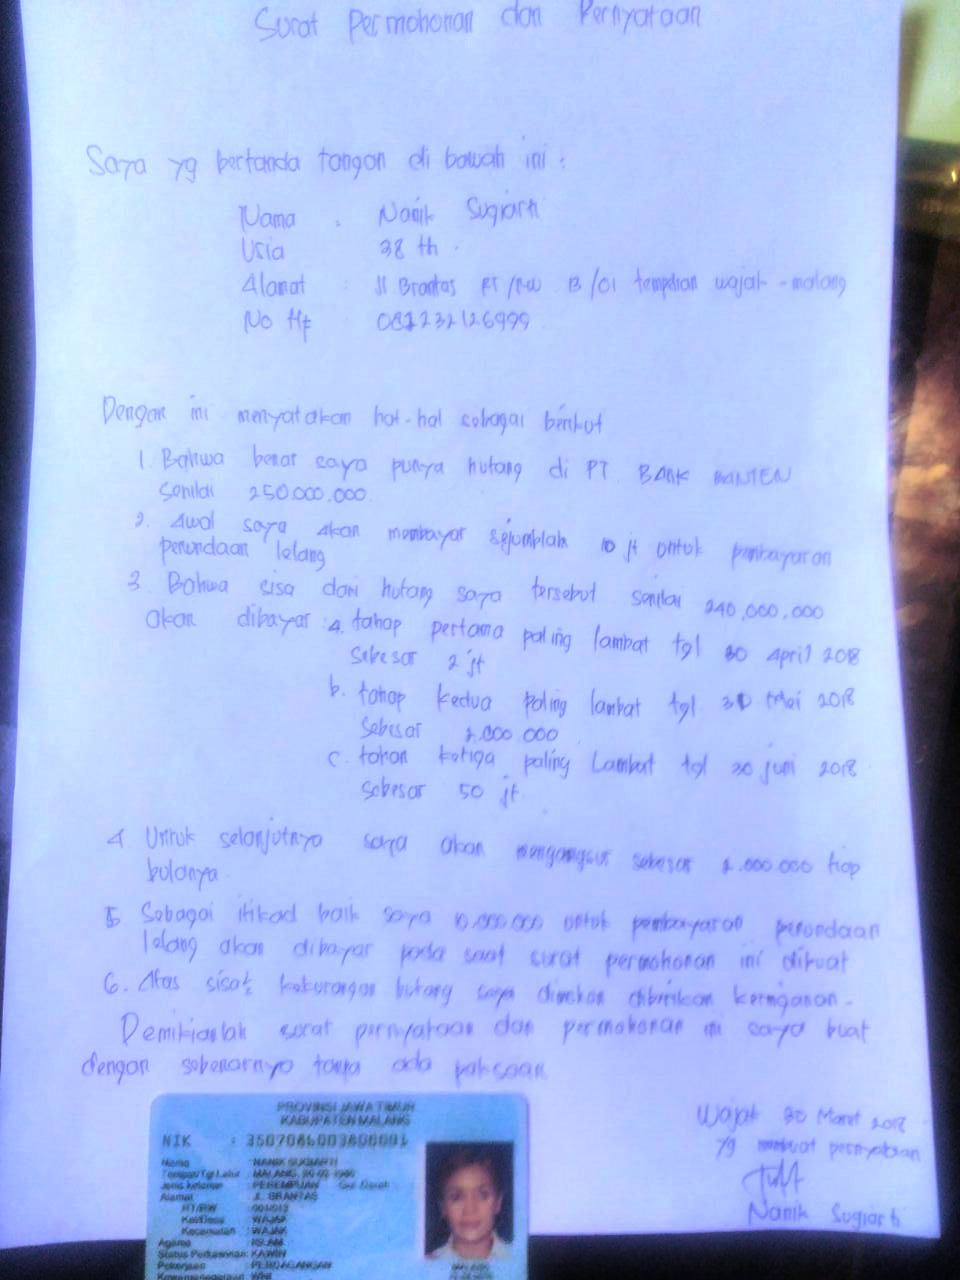 Surat Permohonan dan Pernyataan
Saya yg bertanda tangan di bawah ini :
Nama : Nanik Sugiarti
Usia 38 th .
Alamat : Jl Brantas RT/RW 13/01 wajak - malang
No Hp 081232126999
Dengan ini menyatakan hal-hal sebagai berikut
1. Bahwa benar saya punya hutang di PT. BANK BANTEN
Senilai 250.000.000
2. Awal saya akan membayar sejumblah 10 jt untuk pembayaran
penundaan lelang
3. Bahwa sisa dari hutang saya tersebut senilai 240,000,000
akan dibayar : a. tahap pertama paling lambat tgl 30 April 2018
Sebesar 2 jt
b. tahap kedua paling lambat tgl 31 Mei 2018
Sebesar 2.000 000
c. tahap ketiga paling Lambat tgl 30 juni 2018
Sebesar 50 jt
4 Untuk selanjutnya saya akan mengangsur sebesar 2.000.000 tiap
bulanya.
5. Sebagai itikad baik saya 10.000.000 untuk pembayaran penundaan
lelang akan dibayar pada saat surat permohonan ini dibuat
6. Atas kekurangan hutang saya keringanan.
Demikianlah surat pernyataan dan permohonan ini saya buat
dengan sebenarnya tanpa ada paksaan
PROVINSI JAWA TIMUR
KABUPATEN MALANG
NIK :
Nama : NANIK SUGIARTI
Tempat/Tgl Lahir : MALANG,
Jenis kelamin : PEREMPUAN Gol Darah :
Alamat : JL. BRANTAS
RT/RW
Kel/Desa : WAJAK
Kecamatan : WAJAK
Agama : ISLAM
Status Perkawinan: KAWIN
Pekerjaan : PERDAGANGAN
Kewarganegaraan: WNI
MALANG
Wajak 30 Maret 2018
yg membuat pernyataan
Nanik Sugiarti